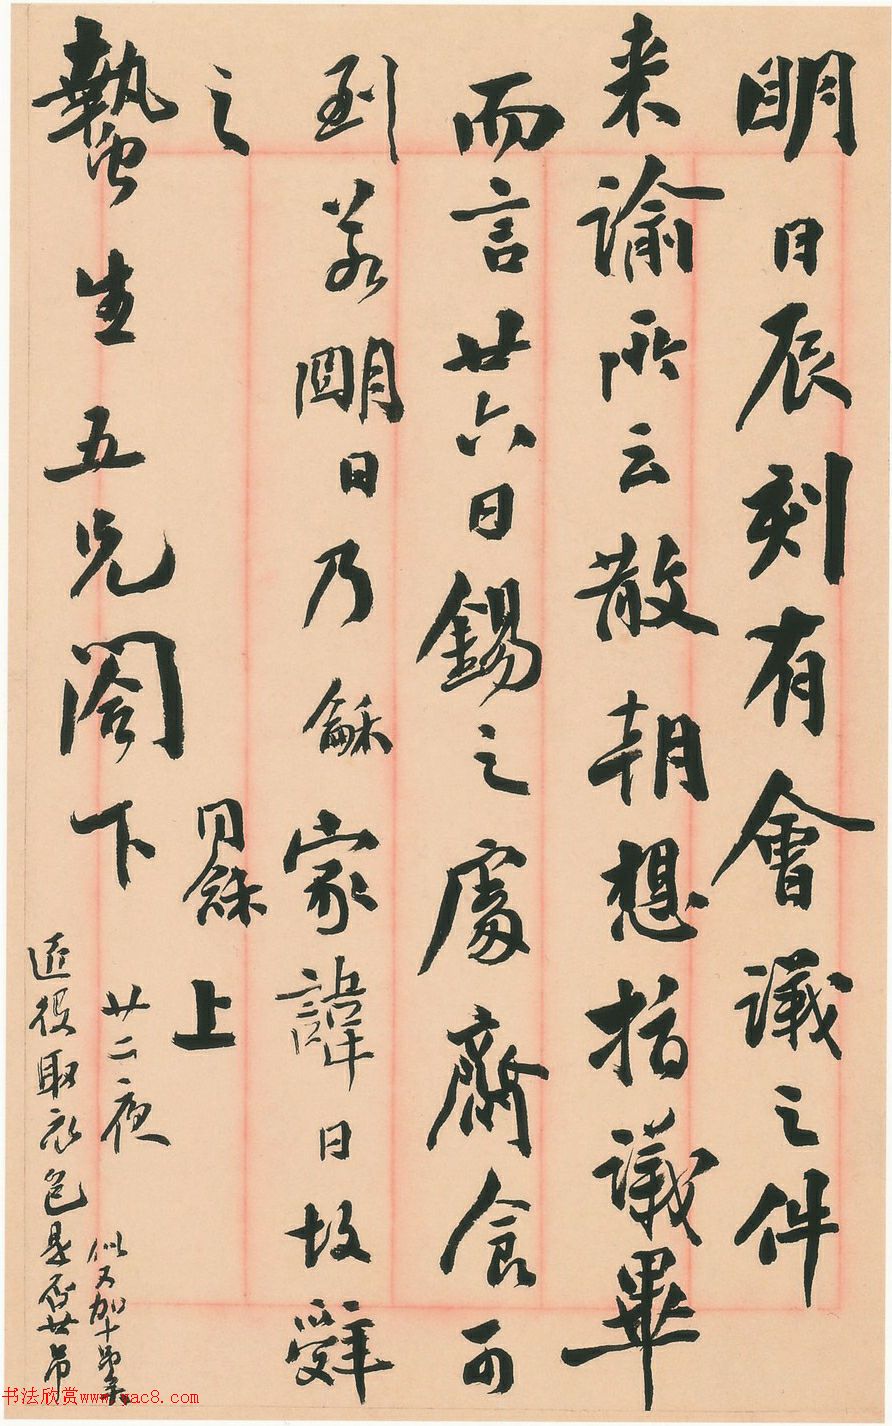 明日辰刻有會議之件
来諭所云散朝想指議畢
而言廿六日錫之處齋食可
到若朙日乃龢家諱日故辤
之
同龢上
蟄生五兄閣下
廿二夜
近役取衣包是否廿吊
似又加十
书法欣赏www.yac8.com